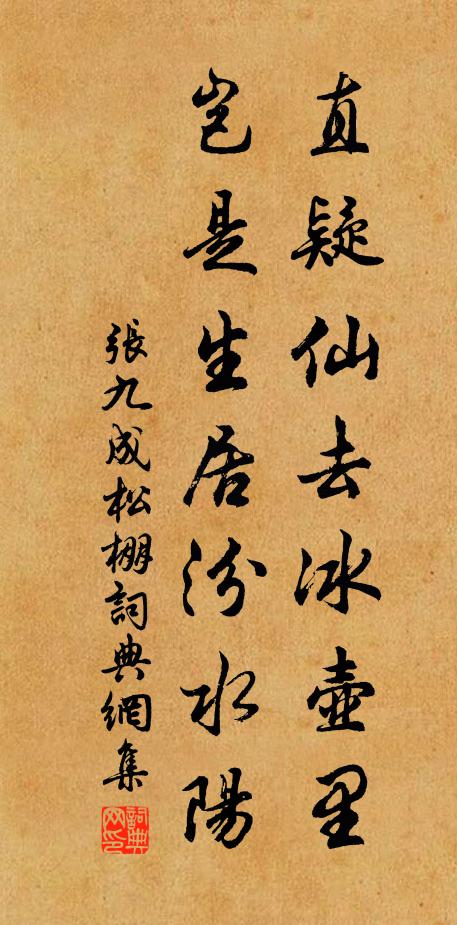 直疑仙去冰壺里
豈是生居汾水陽
張九成松棚詞典網集
詞典网印